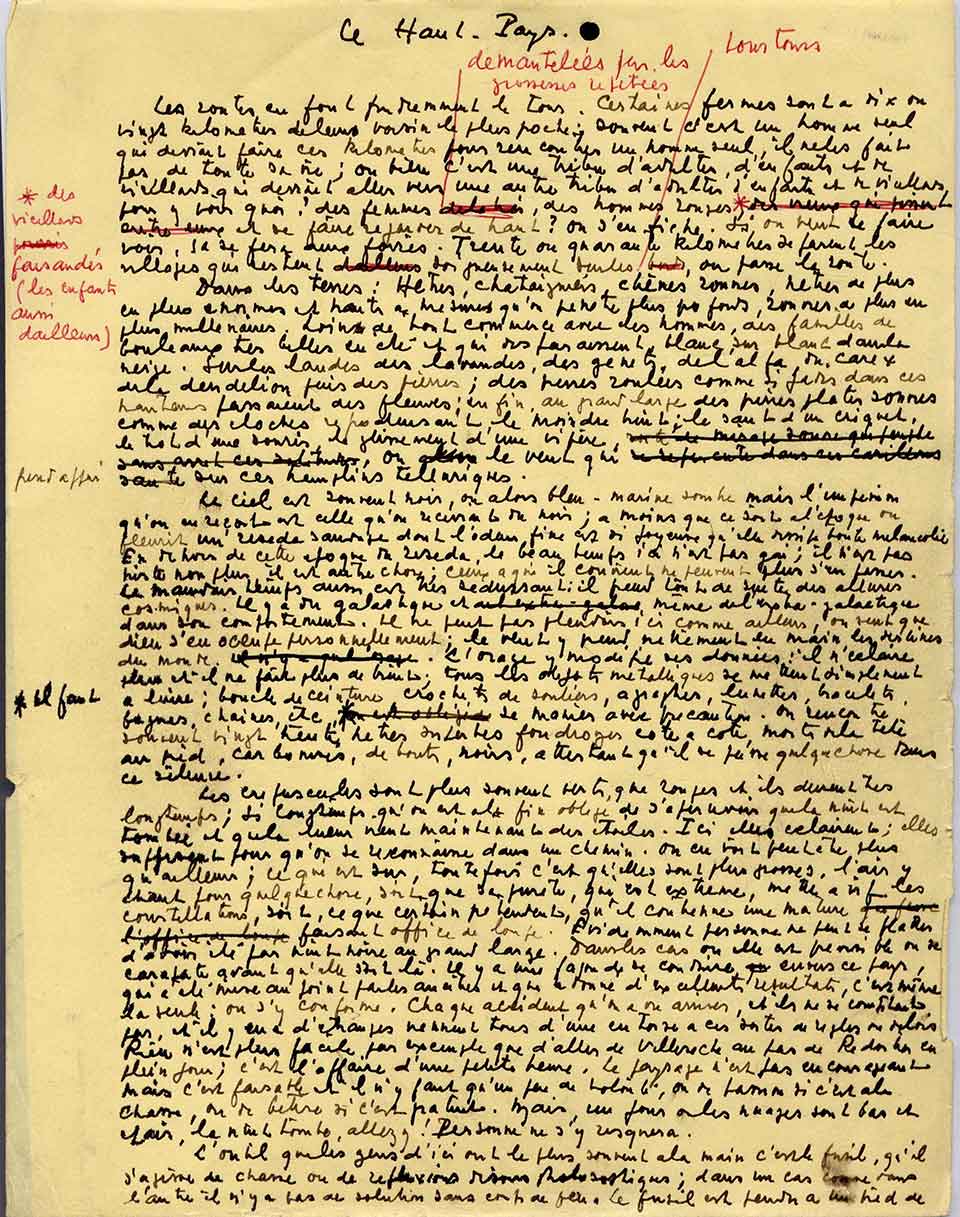 Le Haut-Pays.
demantelées par les
grossesses répétées
toustours
Les routes en font prudemment le tour. Certaines fermes sont a dix ou
vingt kilometres de leurs voisin le plus proche; souvent c'est un homme seul
qui devrait faire ces kilometres pour rencontrer un homme seul, il ne les fait
pas de toute sa vie; ou bien c'est une tribu d'adultes, d'enfants et de
vieillards qui devrait aller vers une autre tribu d'adultes d'enfants et de vieillards
pour y voir quoi? des femmes, des hommes rouges *des vieux qui
entre eux et se faire regarder de haut? on s'en fiche. Si on veut se faire
voir, ça se fera aux foires. Trente ou quarante kilometres separent les
villages qui restent soigneusement sur les, ou passe la route.
* des
vieillards
faisandés
(les enfants
aussi
d'ailleurs)
Dans les terres: Hêtres, chataigniers, chênes rouvres, hetres de plus
en plus enormes et hauts a mesure qu'on penetre plus profond, rouvres de plus en
plus millenaires. Loin de tout commerce avec des hommes, des familles de
bouleaux tres belles en été et qui disparaissent, blanc sur blanc dans la
neige. Sur les landes des lavandes, des genets, de l'alfa, du carex
de la dendelion puis des pierres; des pierres roulées comme si jadis dans ces
hauteurs passaient des fleuves; enfin, au grand large des pierres plates sonores
comme des cloches reproduisant le moindre bruit; le saut d'un criquet,
le trot d'une souris, le glissement d'une vipère,
sans arret ces solitudes, ou le vent qui
saute sur ces tremplins telluriques.
Le ciel est souvent noir, ou alors bleu-marine sombre mais l'impression
qu'on en reçoit est celle qu'on recevrait du noir; a moins que ce soit a l'epoque ou
fleurit un reseda sauvage dont l'odeur fine est si joyeuse qu'elle dissipe toute melancolie
En dehors de cette epoque du reseda, le beau temps ici n'est pas gai; il n'est pas
triste non plus, il est autre chose; ceux a qui il convient ne peuvent plus s'en passer.
Le mauvais temps aussi est très seduisant: il prend tout de suite des allures
cosmiques. Il y a du galactique et même de l'extra-galactique
dans son comportement. Il ne peut pas pleuvoir ici comme ailleurs, on sent que
dieu s'en occupe personnellement; le vent y prend nettement en main les destinées
du monde. L'orage y modifie ses données: il n'eclaire
plus et il ne fait plus de bruit; tous les objets metalliques se mettent simplement
a luire; boucle de ceinture crochets de souliers, agrafes, lunettes, bracelets,
bagues, chaines, etc, se manier avec precaution. On rencontre
souvent vingt, trente, hetres superbes foudroyés cote a cote, morts de la tête
au pied, carbonisés, debouts, noirs, attestant qu'il se passe quelque chose dans
ce silence.
* il faut
Les crepuscules sont plus souvent verts, que rouges et ils durent tres
longtemps; si longtemps qu'on est a la fin obligé de s'apercevoir que la nuit est
tombée et que la lueur vient maintenant des etoiles. Ici elles eclairent; elles
suffisent pour qu'on se reconnaisse dans un chemin. On en voit peut être plus
qu'ailleurs; ce qui est sur, toutefois c'est qu'elles sont plus grosses, l'air y
etant pour quelque chose, soit que sa pureté, qui est extrême, mette a vif les
constellations, soit, ce que certain pretendent, qu'il contienne une matiere qui fasse
l'office de loupe faisant office de loupe. Evidemment personne ne peut se flatter
d'avoir été par nuit noire au grand large. Dans les cas ou elle est previsible on se
carapate avant qu'elle soit là. Il y a une façon de se conduire envers ce pays,
qui a été mise au point par les ancêtres et qui a donné d'excellents resultats, c'est même
la seule: on s'y conforme. Chaque accident qu'on a vu arriver, et ils ne se comptent
pas, et il y en a d'etranges viennent tous d'une entorse a ces sortes de regles ou de lois
Rien n'est plus facile par exemple que d'aller de Villeseche au pas de Redortier en
plein jour; c'est l'affaire d'une petite heure. Le paysage n'est pas encourageant
mais c'est faisable et il n'y faut qu'un peu de volonté, ou de passion si c'est a la
chasse, ou de betise si c'est gratuit. Mais, un jour ou les nuages sont bas et
epais, la nuit tombe, allez y! Personne ne s'y risquera.
L'outil que les gens d'ici ont le plus souvent a la main c'est le fusil, qu'il
s'agisse de chasse ou de reflexions disons philosophiques; dans un cas comme dans
l'autre il n'y a pas de solution sans coup de feu. Le fusil est pendu a un pied de